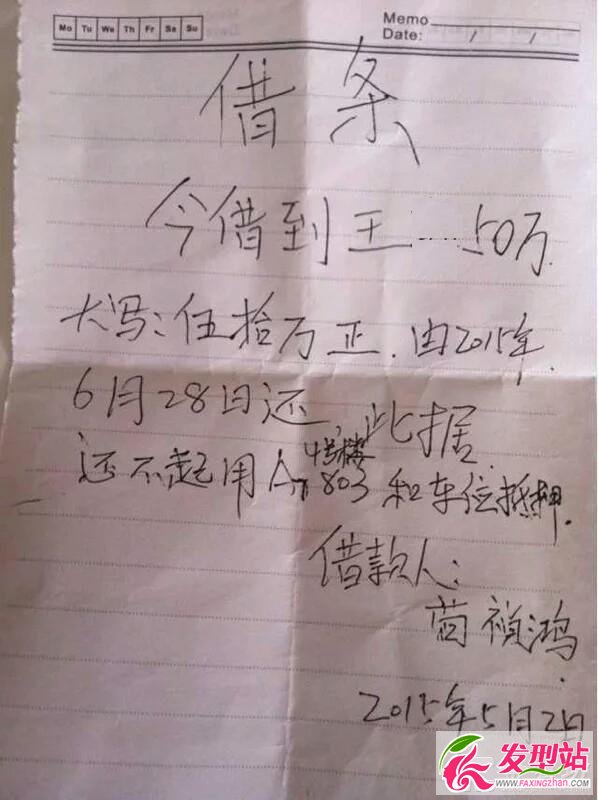 Mo Tu We Th Fr Sa Su
Memo
Date: / /
借条
今借到王 50万
大写:伍拾万正.由2015年.
6月28日还,此据.
4号楼
还不起用A 803和车位抵押.
借款人:
祯鸿
2015年5月2日
发型站
WWW.FAXINGZHAN.COM